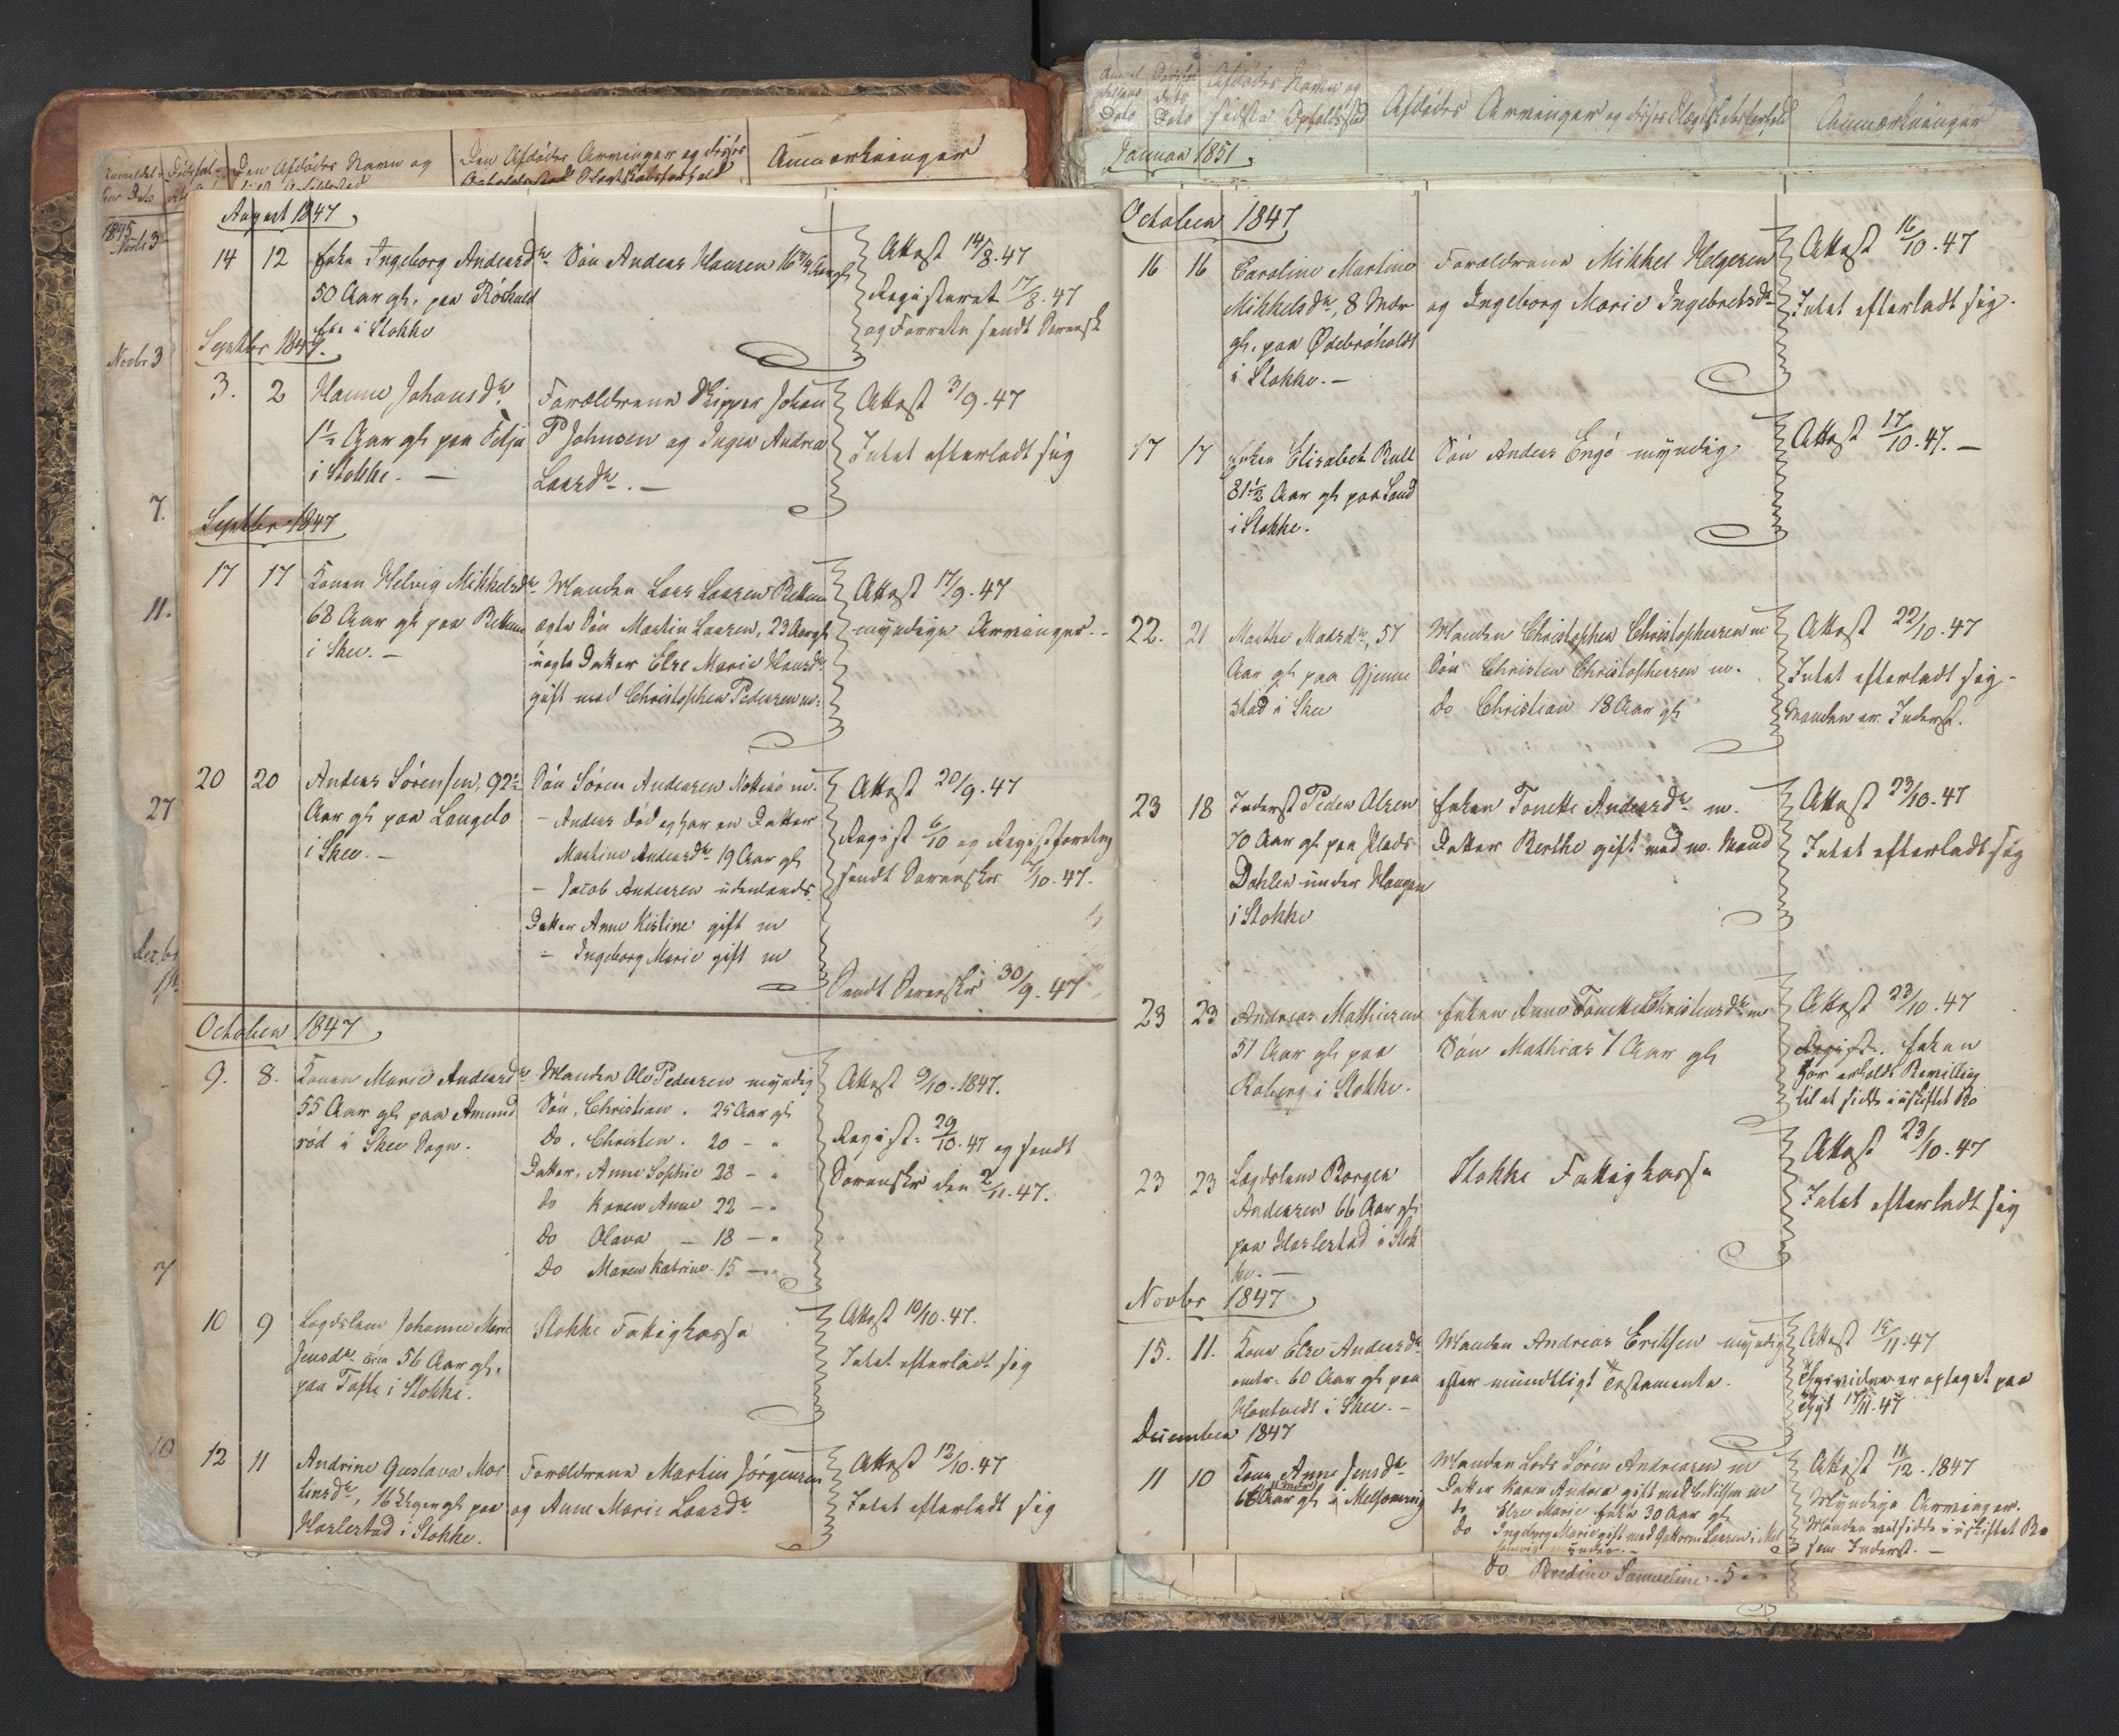 Anmeldel-
ser Dato
Dødsfal-
Den Afdødes Navn og
Den Afdødes Arvinger og disses
Opholdssted Slægtskabsforhold
Anmærkninger
1845
Novbr 3
7.
11.
27
Decbr
7
10
August 1847
14 12 Enke Ingeborg Andersdr
50 Aar gl. paa Röskald
i Stokke
Sön Anders Hansen 16 3/4 Aar gl
Attest 14/8.47
Registeret 17/8.47
og Forretn sendt Sorensk
Septbr 1847.
3. 2 Hanne Johansdr
1 1/2 Aar gl paa Feljo
i Stokke. —
Forældrene Skipper Johan
P Johnsen og Inger Andrea
Larsdr. —
Attest 3/9.47
Intet efterladt sig
Septbr 1847
17 17 Konen Helvig Mikkelsdr
68 Aar gl paa Bettum
i Skee. —
Manden Lars Larsen Bettum
ægte Sön Martin Larsen, 23 Aar gl
uægte Datter Else Marie Hansdr
gift med Christopher Pedersen m:
Attest 17/9.47
myndige Arvinger. -
20 20 Anders Sörensen, 92 1/2
Aar gl paa Langelo
i Skee. —
Sön Sören Andersen Nötterö m.
— Anders død og har en Datter
Martine Andersdr 19 Aar gl
— Jacob Andersen udenlands.
Datter Anne Kistine gift m
— Ingeborg Marie gift m
Attest 20/9.47
Regist 6/10 og Registforretng
sendt Sorenskr 7/10.47.
Sendt Sorenskr 30/9.47
October 1847
9. 8. Konen Marie Andersdr
55 Aar gl paa Amund
röd i Skee Sogn.
Manden Ole Pedersen myndig
Sön, Christian. 25 Aar gl
Do. Christen. 20 — "
Datter, Anne Sophie 28 — "
do Karen Anne 22 — "
do Olava — 18 — "
do Maren Katrine 15 — "
Attest 9/10.1847.
Regist: 29/10.47 og sendt
Sorenskr den 2/11.47.
10 9 Lægdslem Johanne Marie
Jensdr 56 Aar gl.
paa Tofte i Stokke.
Stokke Fattigkasse
Attest 10/10.47.
Intet efterladt sig
12 11 Andrine Gustava Mar
tinsdr, 16 Uger gl paa
Harlestad i Stokke.
Forældrene Martin Jörgensen
og Anne Marie Larsdr
Attest 12/10.47
Intet efterladt sig
Afdødes Navn og
sidste Opholdssted
Afdødes Arvinger og disses Slægtskabsforhold
Anmærkninger
Januar 1851
October 1847
16 16 Caroline Martine
Mikkelsdr, 8 Mdr
gl. paa Ødebröholdt
i Stokke. —
Forældrene Mikkel Helgesen
og Ingeborg Marie Ingebretsdr
Attest 16/10.47
Intet efterladt sig.
17 17 Enken Elisabet Bull
81 1/2 Aar gl paa Sand
i Stokke.
Sön Anders Engö myndig
Attest 17/10.47. —
22. 21 Marthe Madsdr, 57
Aar gl paa Gjenne
stad i Skee
Manden Christopher Christophersen m
Sön Christen Christophersen m.
do Christian 18 Aar gl
Attest 22/10.47
Intet efterladt sig -
Manden er Inderst.
23 18 Inderst Peder Olsen
70 Aar gl paa Plads
Dahlen under Haugan
i Stokke
Enken Tonette Andersdr m.
Datter Berthe gift med m. Mand
Attest 23/10.47
Intet efterladt sig
23 23 Andreas Mathiesen
51 Aar gl paa
Raberg i Stokke.
Enken Anne Tonette Christensdr m
Sön Mathias 7 Aar gl
Attest 23/10.47
Regist. Enken
har erholdt Bevilling
til at sidde i uskiftet Bo
23 23 Lægdslem Borger
Andersen 66 Aar gl
paa Harlestad i Stok
ke. —
Stokke Fattigkasse
Attest 23/10.47
Intet efterladt sig
Novbr 1847
15. 11. Kone Else Andersdr
omtr. 60 Aar gl paa
Hontvedt i Skee. —
Manden Andreas Eriksen myndig
efter mundtligt Testamente.
Attest 15/11.47
Thgsvidne er optaget paa
17/11.47
December 1847
11 10 Kone Anne Jensdr
66 Aar gl i Melsomvig
Manden Lods Sören Andreasen m
Datter Karen Andrea gift med E. Nilsen m
do Else Marie Enke 30 Aar gl
do Ingeborg Marie gift med Guttorm Larsen i Mel
somvig myndig. —
Attest 11/12.1847
Myndige Arvinger.
Manden vil sidde i uskiftet Bo
som Inderst. —
do Bredine Samueline. 5 "